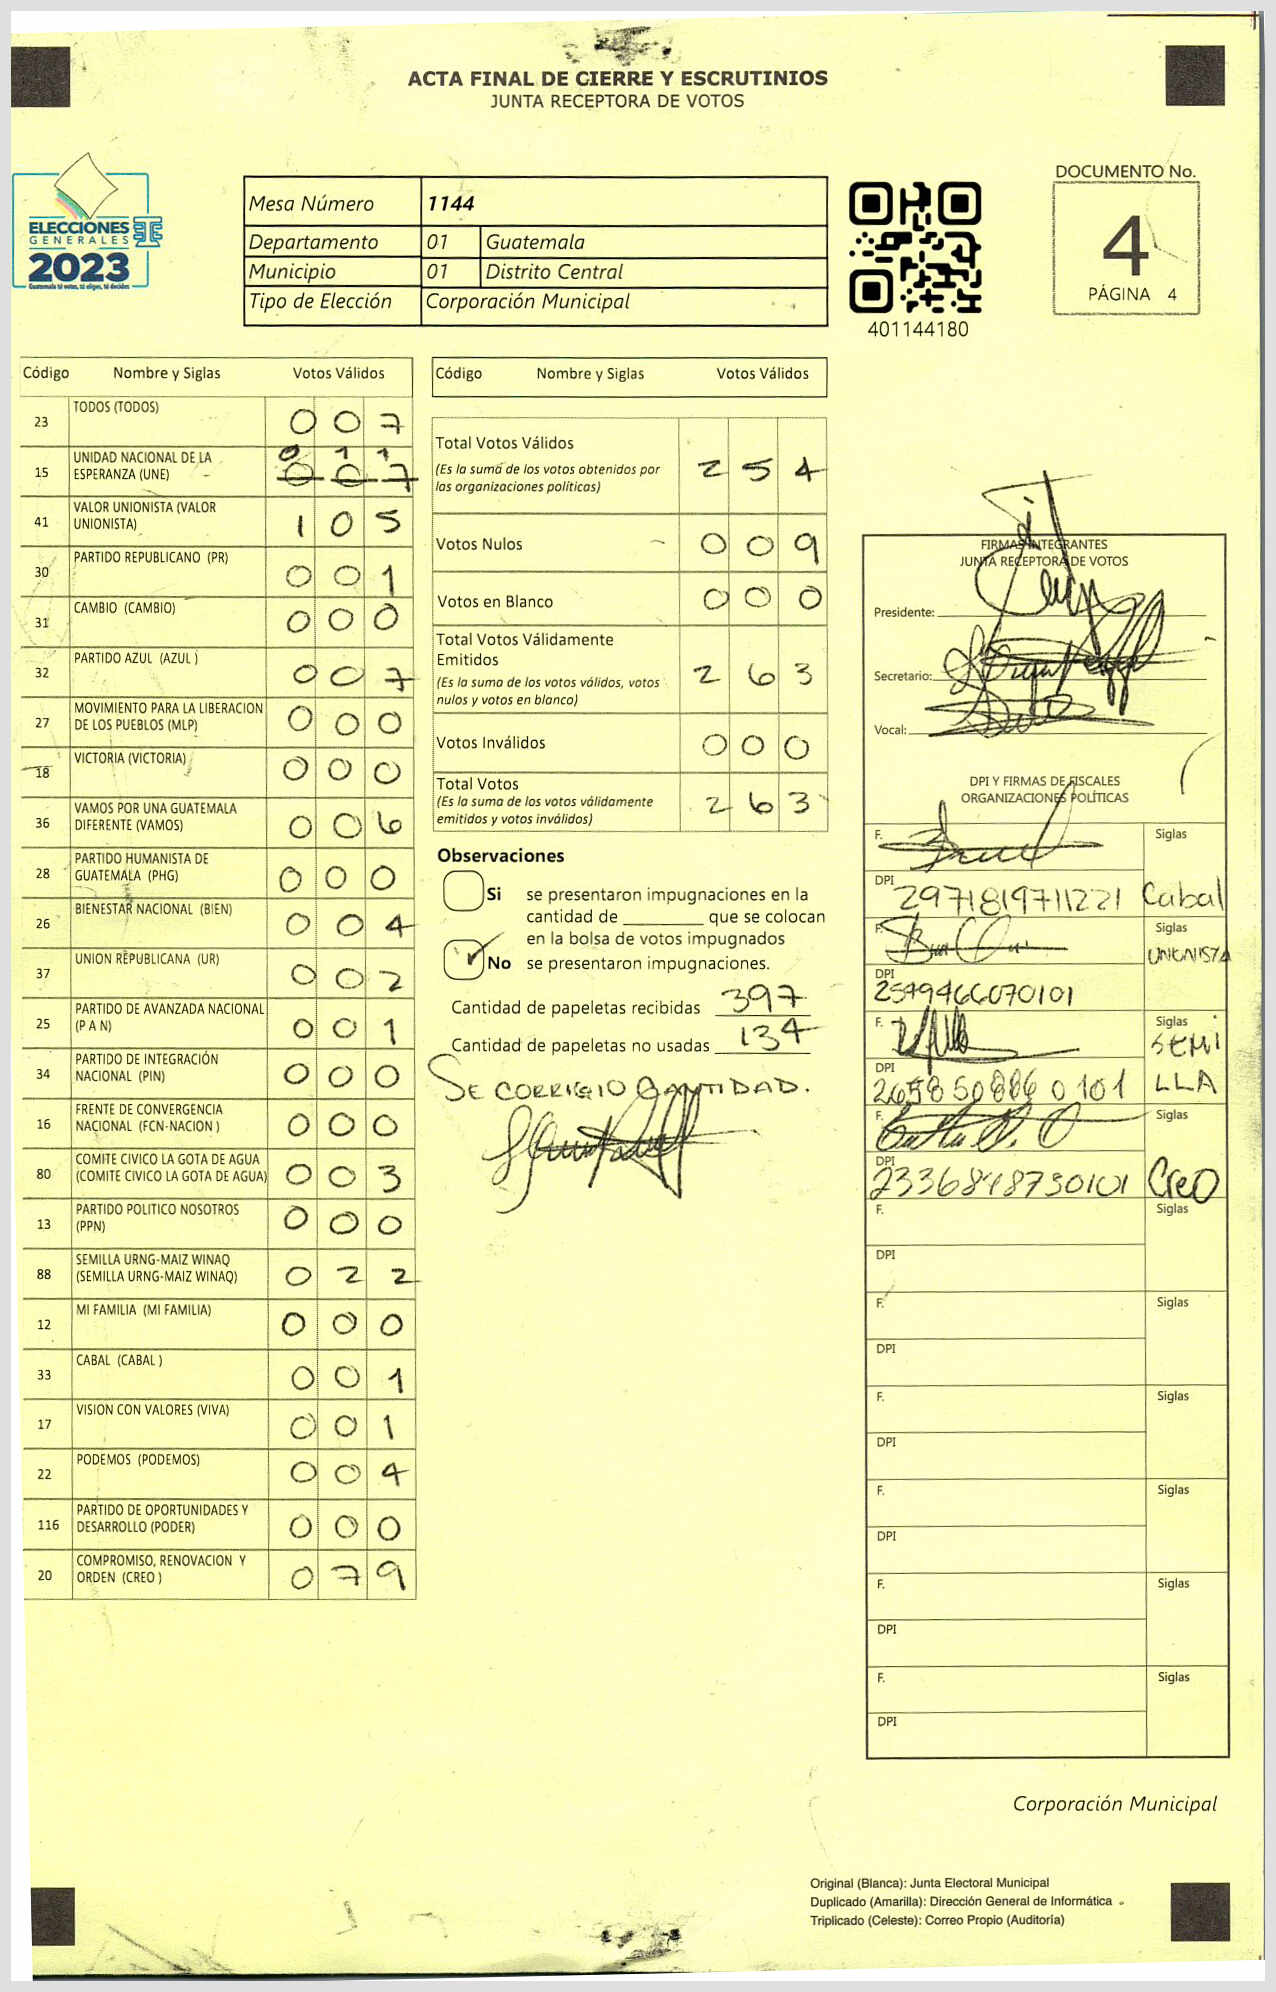 ACTA FINAL DE CIERRE Y ESCRUTINIOS
JUNTA RECEPTORA DE VOTOS
ELECCIONES
GENERALES
2023
Guatemala tú votas, tú eliges, tú decides
Mesa Número 1144
Departamento 01 Guatemala
Municipio 01 Distrito Central
Tipo de Elección Corporación Municipal
401144180
DOCUMENTO No.
4
PÁGINA 4
Código Nombre y Siglas Votos Válidos
23 TODOS (TODOS) 0 0 7
15 UNIDAD NACIONAL DE LA ESPERANZA (UNE) 0 1 1
0 0 7
41 VALOR UNIONISTA (VALOR UNIONISTA) 1 0 5
30 PARTIDO REPUBLICANO (PR) 0 0 1
31 CAMBIO (CAMBIO) 0 0 0
32 PARTIDO AZUL (AZUL ) 0 0 7
27 MOVIMIENTO PARA LA LIBERACION DE LOS PUEBLOS (MLP) 0 0 0
18 VICTORIA (VICTORIA) 0 0 0
36 VAMOS POR UNA GUATEMALA DIFERENTE (VAMOS) 0 0 6
28 PARTIDO HUMANISTA DE GUATEMALA (PHG) 0 0 0
26 BIENESTAR NACIONAL (BIEN) 0 0 4
37 UNION REPUBLICANA (UR) 0 0 2
25 PARTIDO DE AVANZADA NACIONAL (P A N) 0 0 1
34 PARTIDO DE INTEGRACIÓN NACIONAL (PIN) 0 0 0
16 FRENTE DE CONVERGENCIA NACIONAL (FCN-NACION ) 0 0 0
80 COMITE CIVICO LA GOTA DE AGUA (COMITE CIVICO LA GOTA DE AGUA) 0 0 3
13 PARTIDO POLITICO NOSOTROS (PPN) 0 0 0
88 SEMILLA URNG-MAIZ WINAQ (SEMILLA URNG-MAIZ WINAQ) 0 2 2
12 MI FAMILIA (MI FAMILIA) 0 0 0
33 CABAL (CABAL ) 0 0 1
17 VISION CON VALORES (VIVA) 0 0 1
22 PODEMOS (PODEMOS) 0 0 4
116 PARTIDO DE OPORTUNIDADES Y DESARROLLO (PODER) 0 0 0
20 COMPROMISO, RENOVACION Y ORDEN (CREO ) 0 7 9
Código Nombre y Siglas Votos Válidos
Total Votos Válidos 2 5 4
(Es la suma de los votos obtenidos por
las organizaciones políticas)
Votos Nulos 0 0 9
Votos en Blanco 0 0 0
Total Votos Válidamente
Emitidos 2 6 3
(Es la suma de los votos válidos, votos
nulos y votos en blanco)
Votos Inválidos 0 0 0
Total Votos 2 6 3
(Es la suma de los votos válidamente
emitidos y votos inválidos)
Observaciones
Si se presentaron impugnaciones en la
cantidad de ________ que se colocan
en la bolsa de votos impugnados
No se presentaron impugnaciones.
Cantidad de papeletas recibidas 397
Cantidad de papeletas no usadas 134
SE CORRIGIO CANTIDAD.
FIRMAS INTEGRANTES
JUNTA RECEPTORA DE VOTOS
Presidente:
Secretario:
Vocal:
DPI Y FIRMAS DE FISCALES
ORGANIZACIONES POLÍTICAS
F. Siglas
DPI 2971819711221 Cabal
F. Siglas
UNIONISTA
DPI
2549466070101
F. Siglas
SEMI
DPI
2658508860101 LLA
F. Siglas
DPI
2336848730101 CreO
F. Siglas
DPI
F. Siglas
DPI
F. Siglas
DPI
F. Siglas
DPI
F. Siglas
DPI
F. Siglas
DPI
Corporación Municipal
Original (Blanca): Junta Electoral Municipal
Duplicado (Amarilla): Dirección General de Informática
Triplicado (Celeste): Correo Propio (Auditoría)